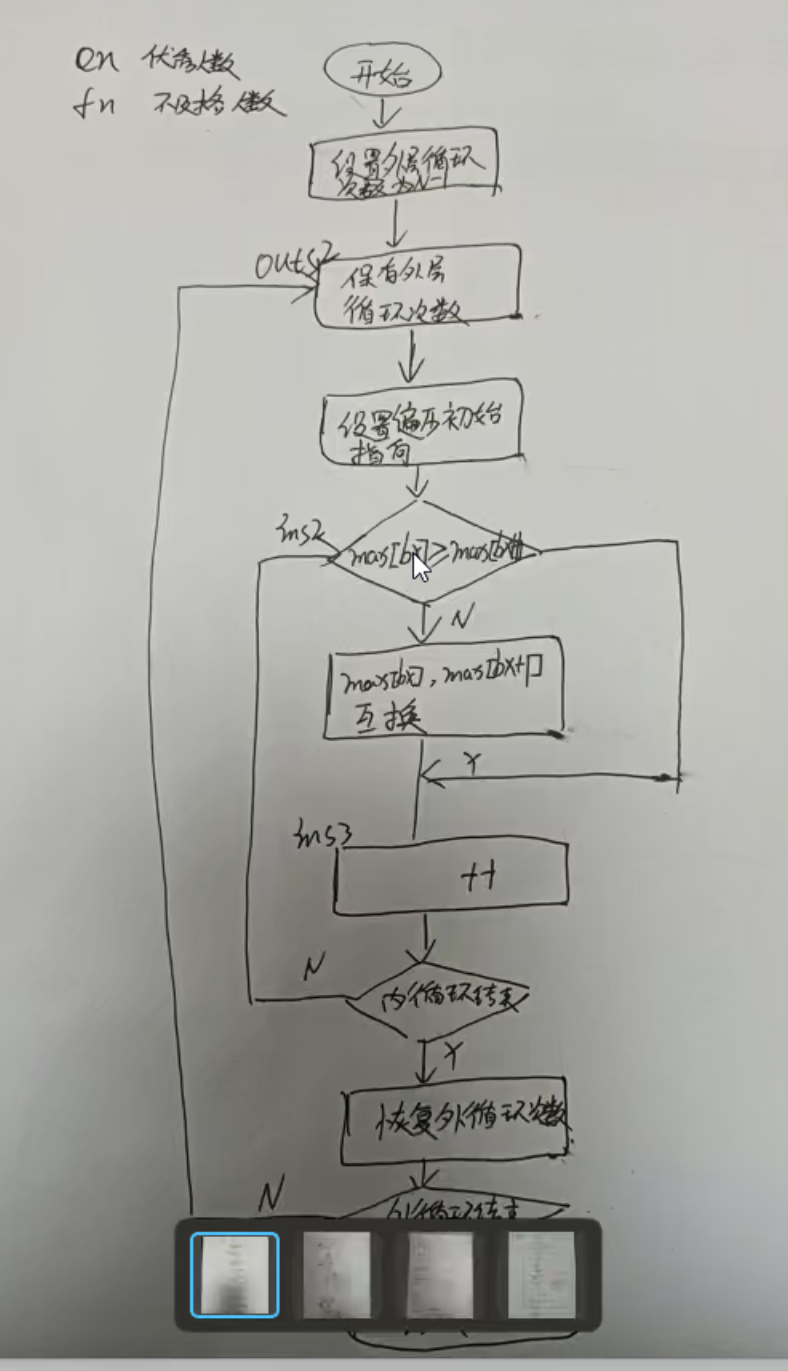 en 优秀人数
fn 不及格人数
开始
设置外层循环
次数为N-1
outs2
保存外层
循环次数
设置遍历初始
指向
ins2
mas[bx]≥mas[bx+1]
N
mas[bx],mas[bx+1]
互换
Y
ins3
++
N
内循环结束
Y
恢复外循环次数
N
外循环结束